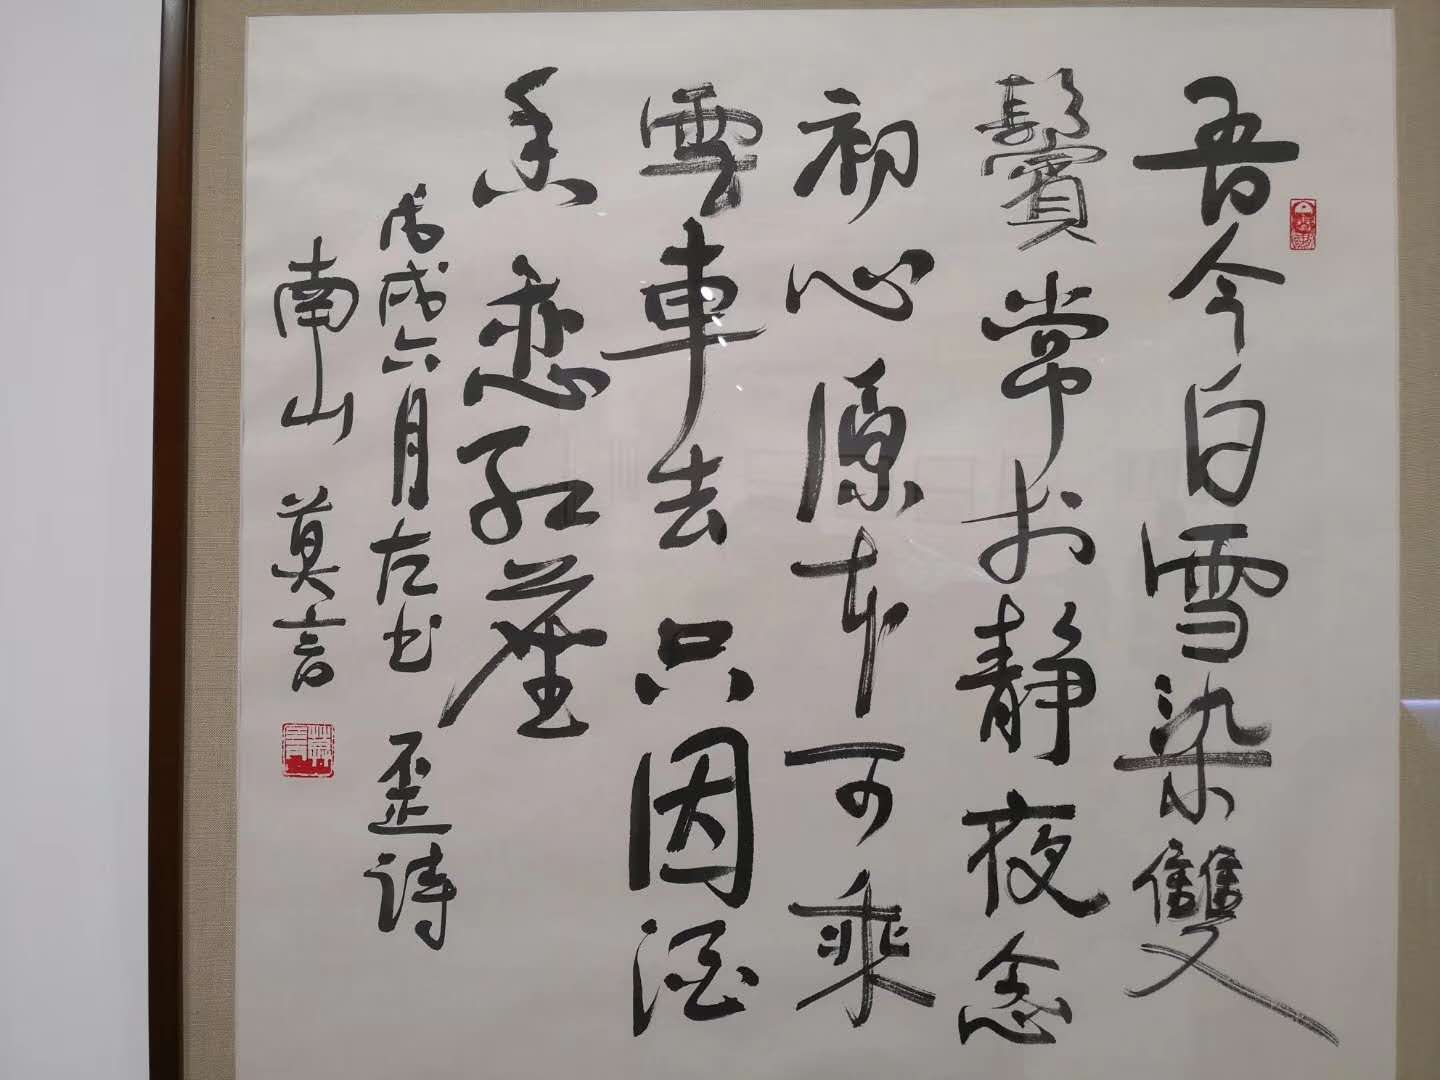 吾今白雪染雙
鬢常於静夜念
初心原本可乘
雲車去只因酒
香恋紅塵
戊戌六月左书歪詩
南山莫言